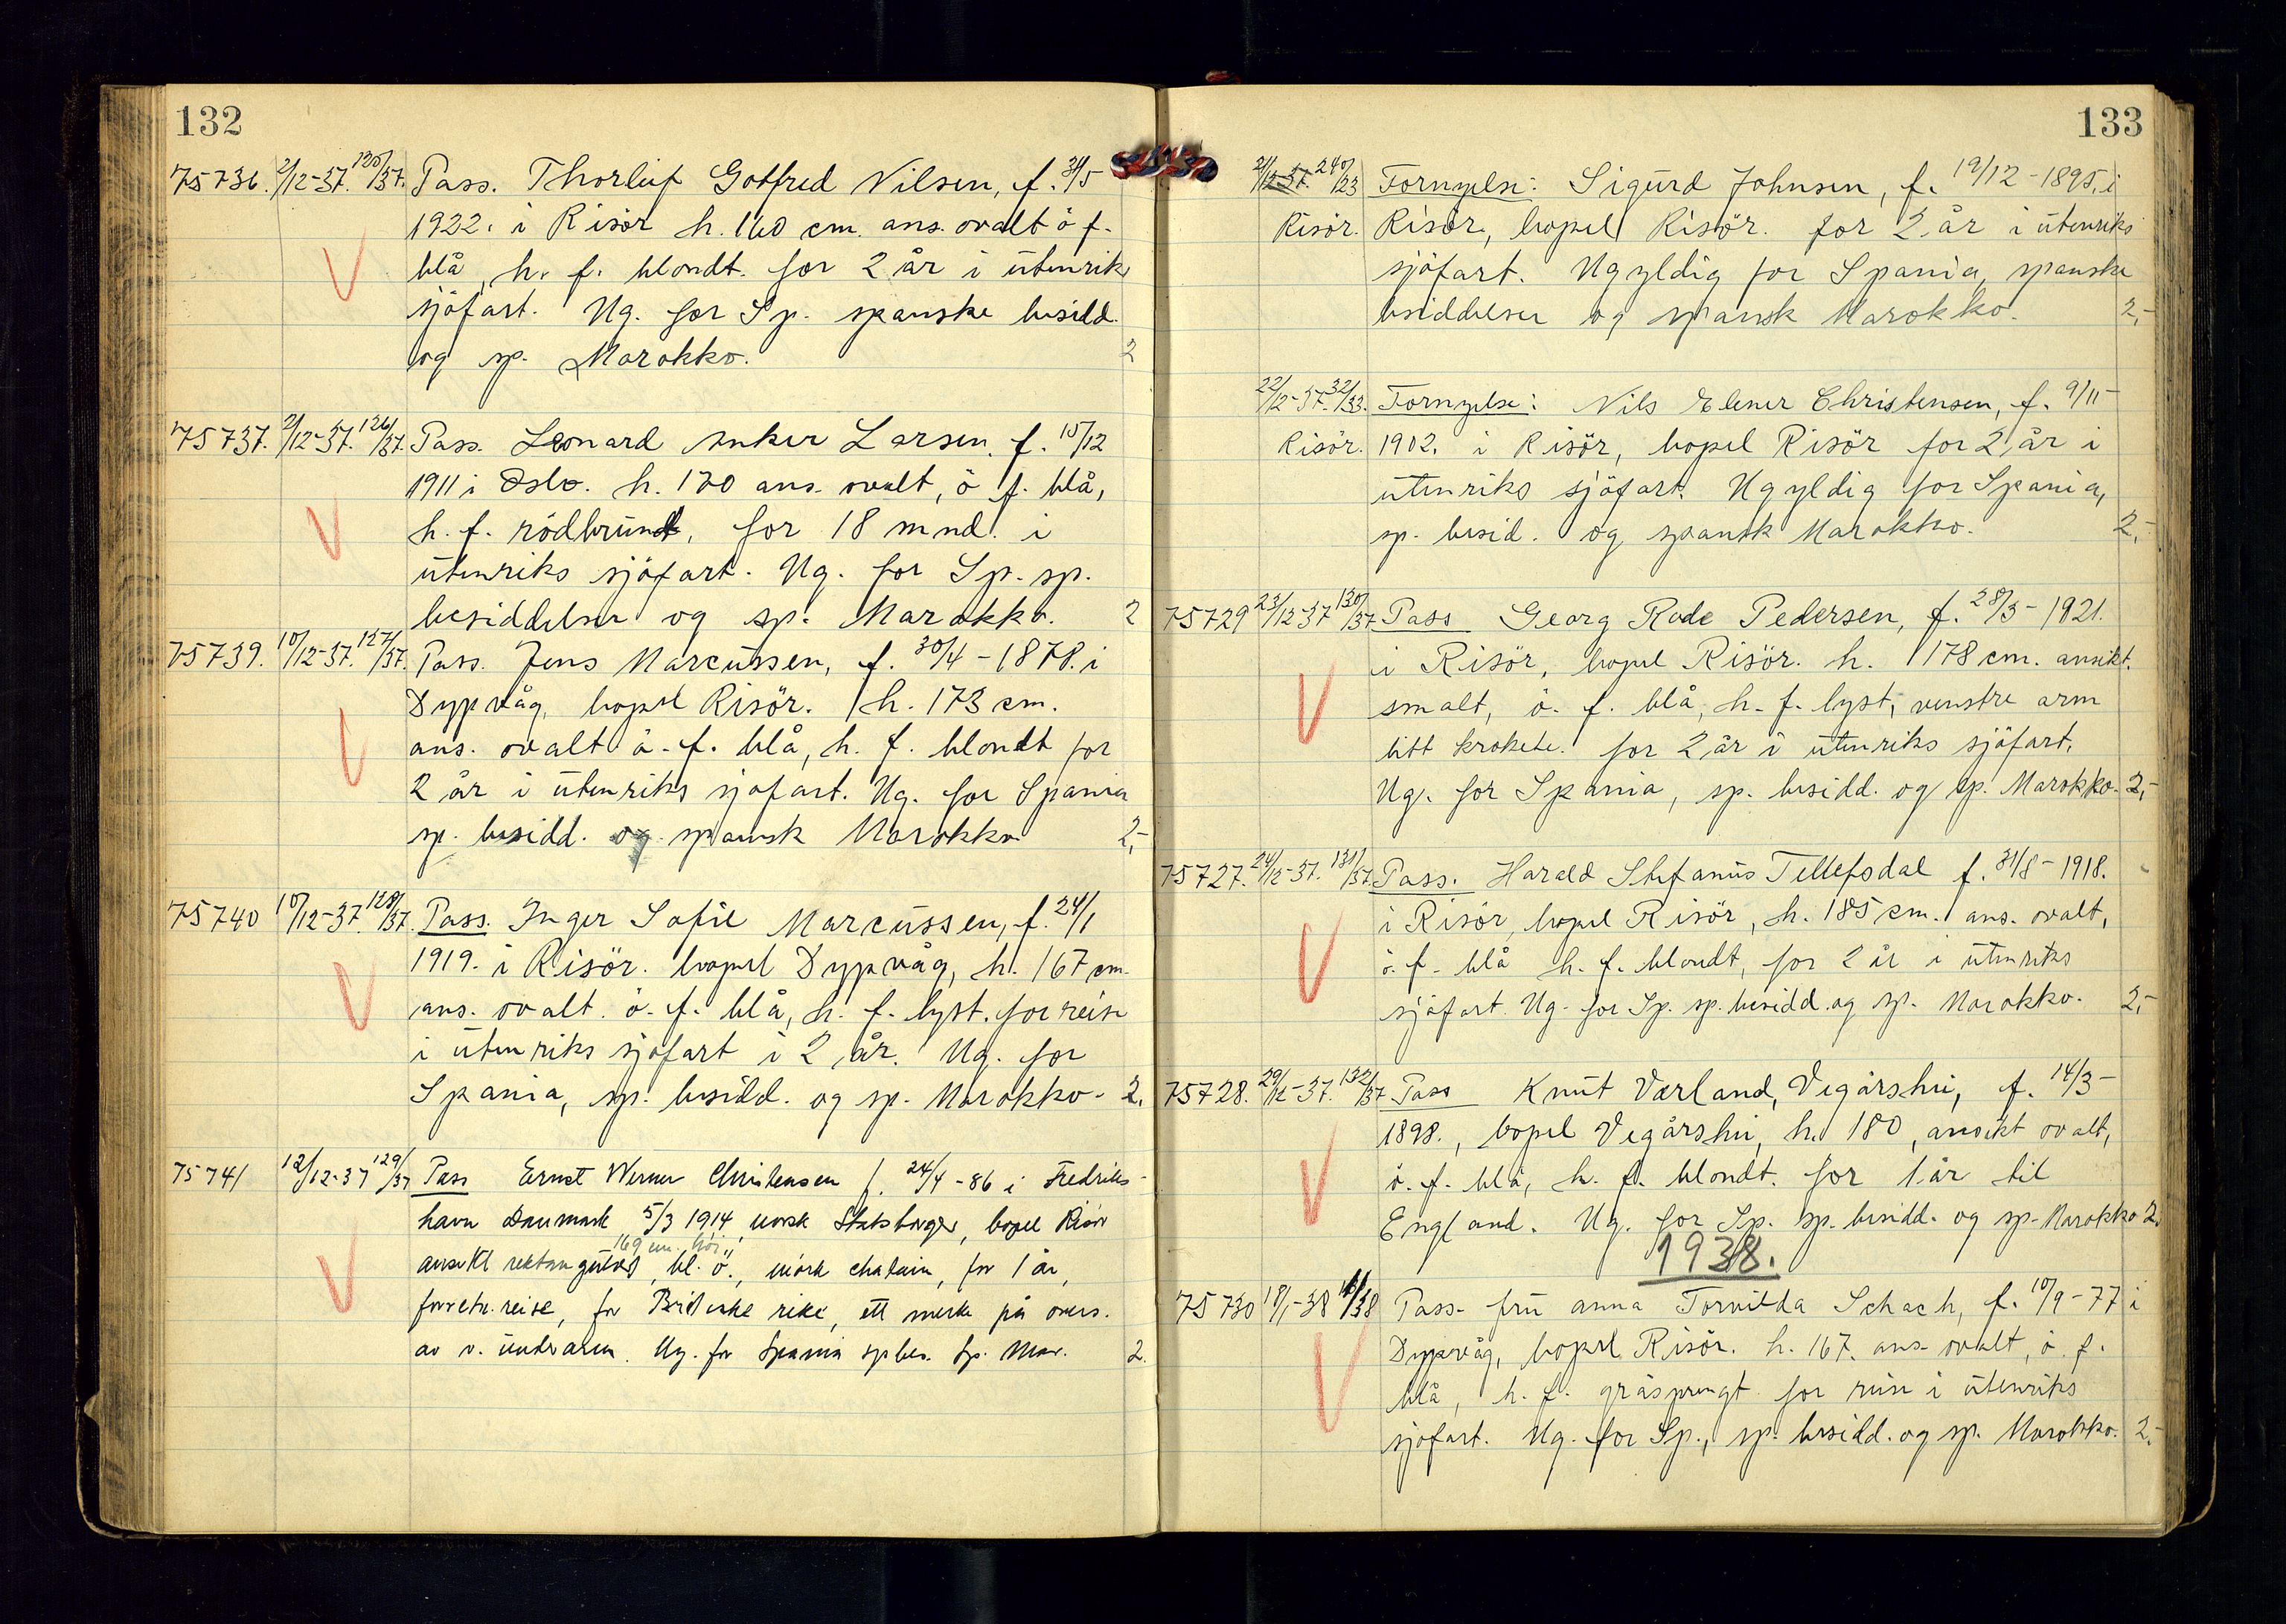 132
75736. 2/12-37. 125/37. Pass. Thorleif Gotfred Nilsen, f. 31/5
1922. i Risör h. 160 cm. ans. ovalt ö f.
blå, h. f. blondt. for 2 år i utenriks
sjöfart. Ug. for Sp. spanske besidd.
og sp. Marokko. 2
75737. 2/12-37. 126/37. Pass. Leonard Anker Larsen, f. 15/12
1911 i Oslo. h. 170 ans. ovalt, ö f. blå,
h. f. rödbrunt, for 18 mnd. i
utenriks sjöfart. Ug. for Sp. sp.
besiddelser og sp. Marokko. 2
75739. 10/12-37. 127/37. Pass. Jens Marcussen, f. 30/4-1878. i
Dypvåg, bopel Risör. h. 173 cm.
ans. ovalt ö. f. blå, h. f. blondt for
2 år i utenriks sjöfart. Ug. for Spania
sp. besidd. og spansk Marokko 2,-
75740 10/12-37. 128/37. Pass. Inger Sofie Marcussen, f. 24/1
1919. i Risör. bopel Dypvåg, h. 167 cm.
ans. ovalt. ö. f. blå, h. f. lyst. for reise
i utenriks sjöfart i 2 år. Ug. for
Spania, sp. besidd. og sp. Marokko. 2.
75741 12/12-37 129/37 Pass Ernst Werner Christensen f. 24/4-86 i Fredriks-
havn Danmark 5/3 1914, norsk Statsborger, bopel Risör
169 cm. höi
ansikt rektangulært, bl. ö., mörk chatain, for 1 år,
forretn. reise, for Britiske rike, ett merke på overs.
av v. underarm. Ug. for Spania sp bes. Sp. Mar. 2.
133
21/12-37. 240/23 Fornyelse: Sigurd Johnsen, f. 19/12-1895. i
Risör. Risör, bopel Risör. for 2 år i utenriks
sjöfart. Ugyldig for Spania, spanske
besiddelser og spansk Marokko. 2,-
22/12-37. 32/33. Fornyelse: Nils Elener Christensen, f. 9/11-
Risör. 1902. i Risör, bopel Risör for 2 år i
utenriks sjöfart. Ugyldig for Spania,
sp. besid. og spansk Marokko. 2,-
75729 23/12-37 130/37 Pass Georg Rode Pedersen, f. 28/3-1921.
i Risör, bopel Risör. h. 178 cm. ansikt.
smalt, ö. f. blå, h. f. lyst, venstre arm
litt krokete. for 2 år i utenriks sjöfart,
Ug. for Spania, sp. besidd. og sp. Marokko. 2,-
75727. 24/12-37. 131/37. Pass. Harald Stefanus Tellefsdal f. 31/8-1918.
i Risör, bopel Risör, h. 185 cm. ans. ovalt,
ö. f. blå h. f. blondt, for 2 år i utenriks
sjöfart. Ug. for Sp. sp. besidd. og sp. Marokko. 2,-
75728. 29/12-37. 132/37 Pass Knut Varland, Vegårshei, f. 14/3-
1898., bopel Vegårshei, h. 180, ansikt ovalt,
ö. f. blå, h. f. blondt. for 1 år til
England. Ug. for Sp. sp. besidd. og sp. Marokko 2.
1938.
75730 18/1-38 1/38 Pass. fru Anna Torvilda Schach, f. 10/9-77 i
Dypvåg, bopel Risör. h. 167. ans. ovalt, ö. f.
blå, h. f. gråsprengt for reise i utenriks
sjöfart. Ug. for Sp., sp. besidd. og sp. Marokko. 2.-